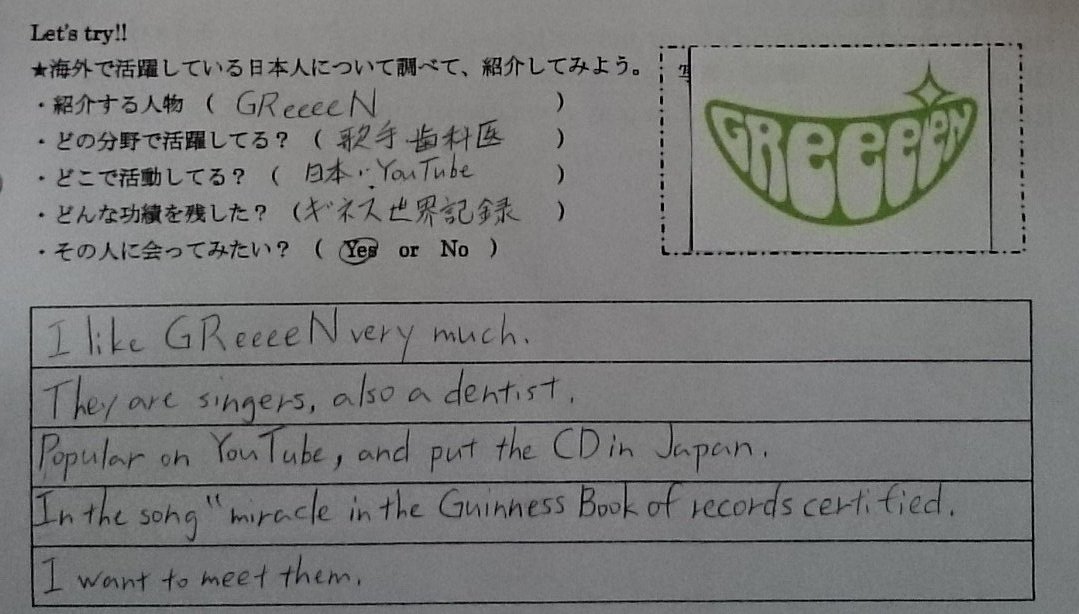 Let's try!!
★海外で活躍している日本人について調べて、紹介してみよう。
・紹介する人物 ( GReeeeN )
・どの分野で活躍してる? ( 歌手・歯科医 )
・どこで活動してる? ( 日本・YouTube )
・どんな功績を残した? (ギネス世界記録 )
・その人に会ってみたい? ( Yes or No )
GReeeeN
I like GReeeeN very much.
They are singers, also a dentist.
Popular on YouTube, and put the CD in Japan.
In the song "miracle in the Guinness Book of records certified.
I want to meet them.